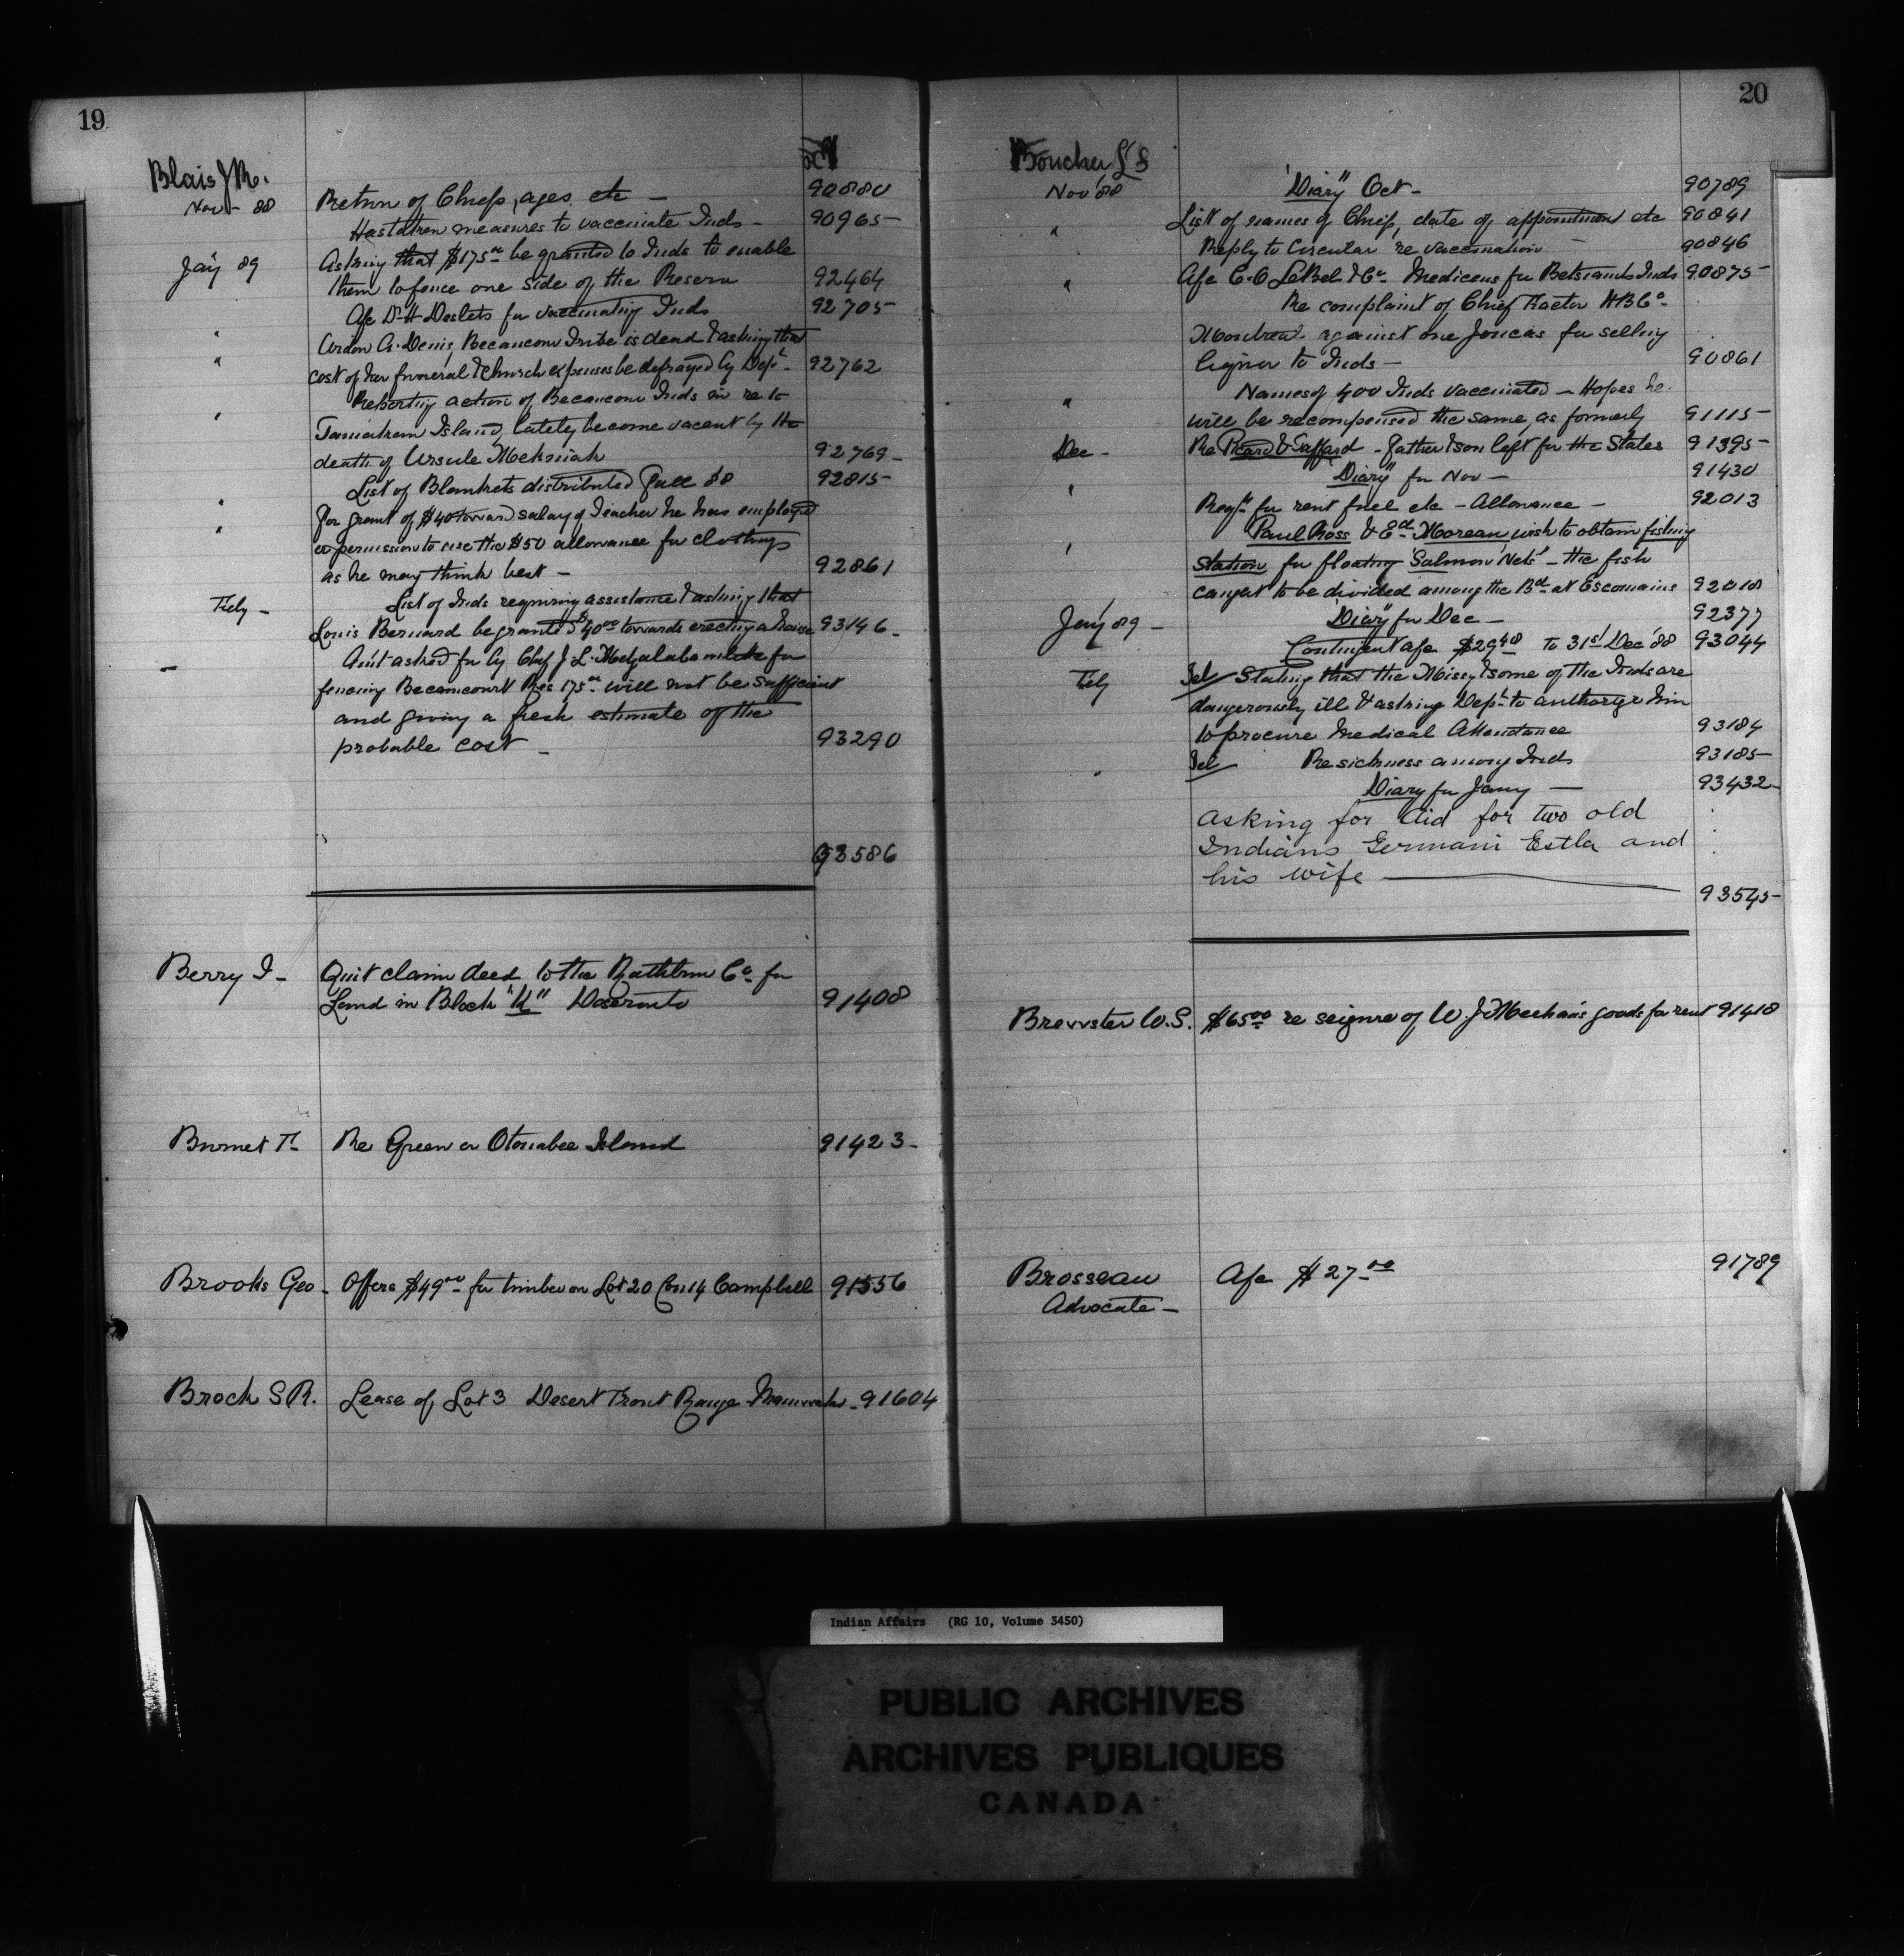 19
Blais J R.
Nov - 88 Return of Chiefs, ages etc - 90880
Has taken measures to vaccinate Inds - 90965
Jany 89 Asking that $175.00 be granted to Inds to enable
them to fence one side of the Reserve 92464
" Afc Dr H Desilets for vaccinating Inds 92705
A. Denis, Becancour Tribe is dead & asking that
" cost of her funeral & Church expenses be defrayed by Dept - 92762
Reporting action of Becancour Inds in re to
" Island, lately become vacant by the
death of Ursule 92769 -
List of Blankets distributed Fall 88 92815
" For grant of $40 toward salary of Teacher he has employed
" or permission to use the $50 allowance for clothing
as he may think best - 92861
Feby - List of Inds requiring assistance & asking that
Louis Bernard be granted $40.00 towards erecting a house 93146 -
- Amt asked for by Chief J. L. for
fencing Becancourt Res 175.00 will not be sufficient
and giving a fresh estimate of the
probable cost - 93290
93586
Berry J - Quit claim deed to the Rathbun Co for
Land in Block "K" Deseronto 91408
Burnet T - Re Green or Otonabee Island 91423 -
Brooks Geo - Offers $49.00 for timber on Lot 20 Con 14 Campbell 91556
Brock S R. Lease of Lot 3 Desert Front Range Maniwaki - 91604
20
Boucher L F
Nov 88 "Diary" Oct - 90789
" List of names of Chiefs, date of appointment etc 90841
Reply to Circular re vaccination - 90846
" Afc C. O LeBel & Co Medicens for Betsiamits Inds 90875
Re complaint of Chief Factor H B Co -
Montreal against one Joncas for selling
liquor to Inds - 90861
" Names of 400 Inds vaccinated - Hopes he
will be recompensed the same as formerly 91115
Dec - Re Picard & Gaffard - father & son left for the States 91395
" "Diary" for Nov - 91430
Reqn for rent fuel etc - Allowance - 92013
" Paul Ross & Ed Moreau wish to obtain fishing
Station for floating "Salmon Nets" - the fish
caught to be divided among the Bd at Escomains 92018
Jany 89 - "Diary" for Dec - 92377
Contingent afc $29.48 to 31st Dec '88 93044
Feby Tel Stating that the Missy & some of the Inds are
dangerously ill & asking Dept to authorize him
to procure Medical Attendance 93184
" Tel Re sickness among Inds 93185
Diary for Jany - 93432
Asking for Aid for two old
Indians Germain Estla and
his wife 93545
Brewster W. S. $65.00 re seizure of W. J. Meehan's goods for rent 91418
Brosseau Afc $27.00 91789
Advocate -
Indian Affairs (RG 10, Volume 3450)
PUBLIC ARCHIVES
ARCHIVES PUBLIQUES
CANADA